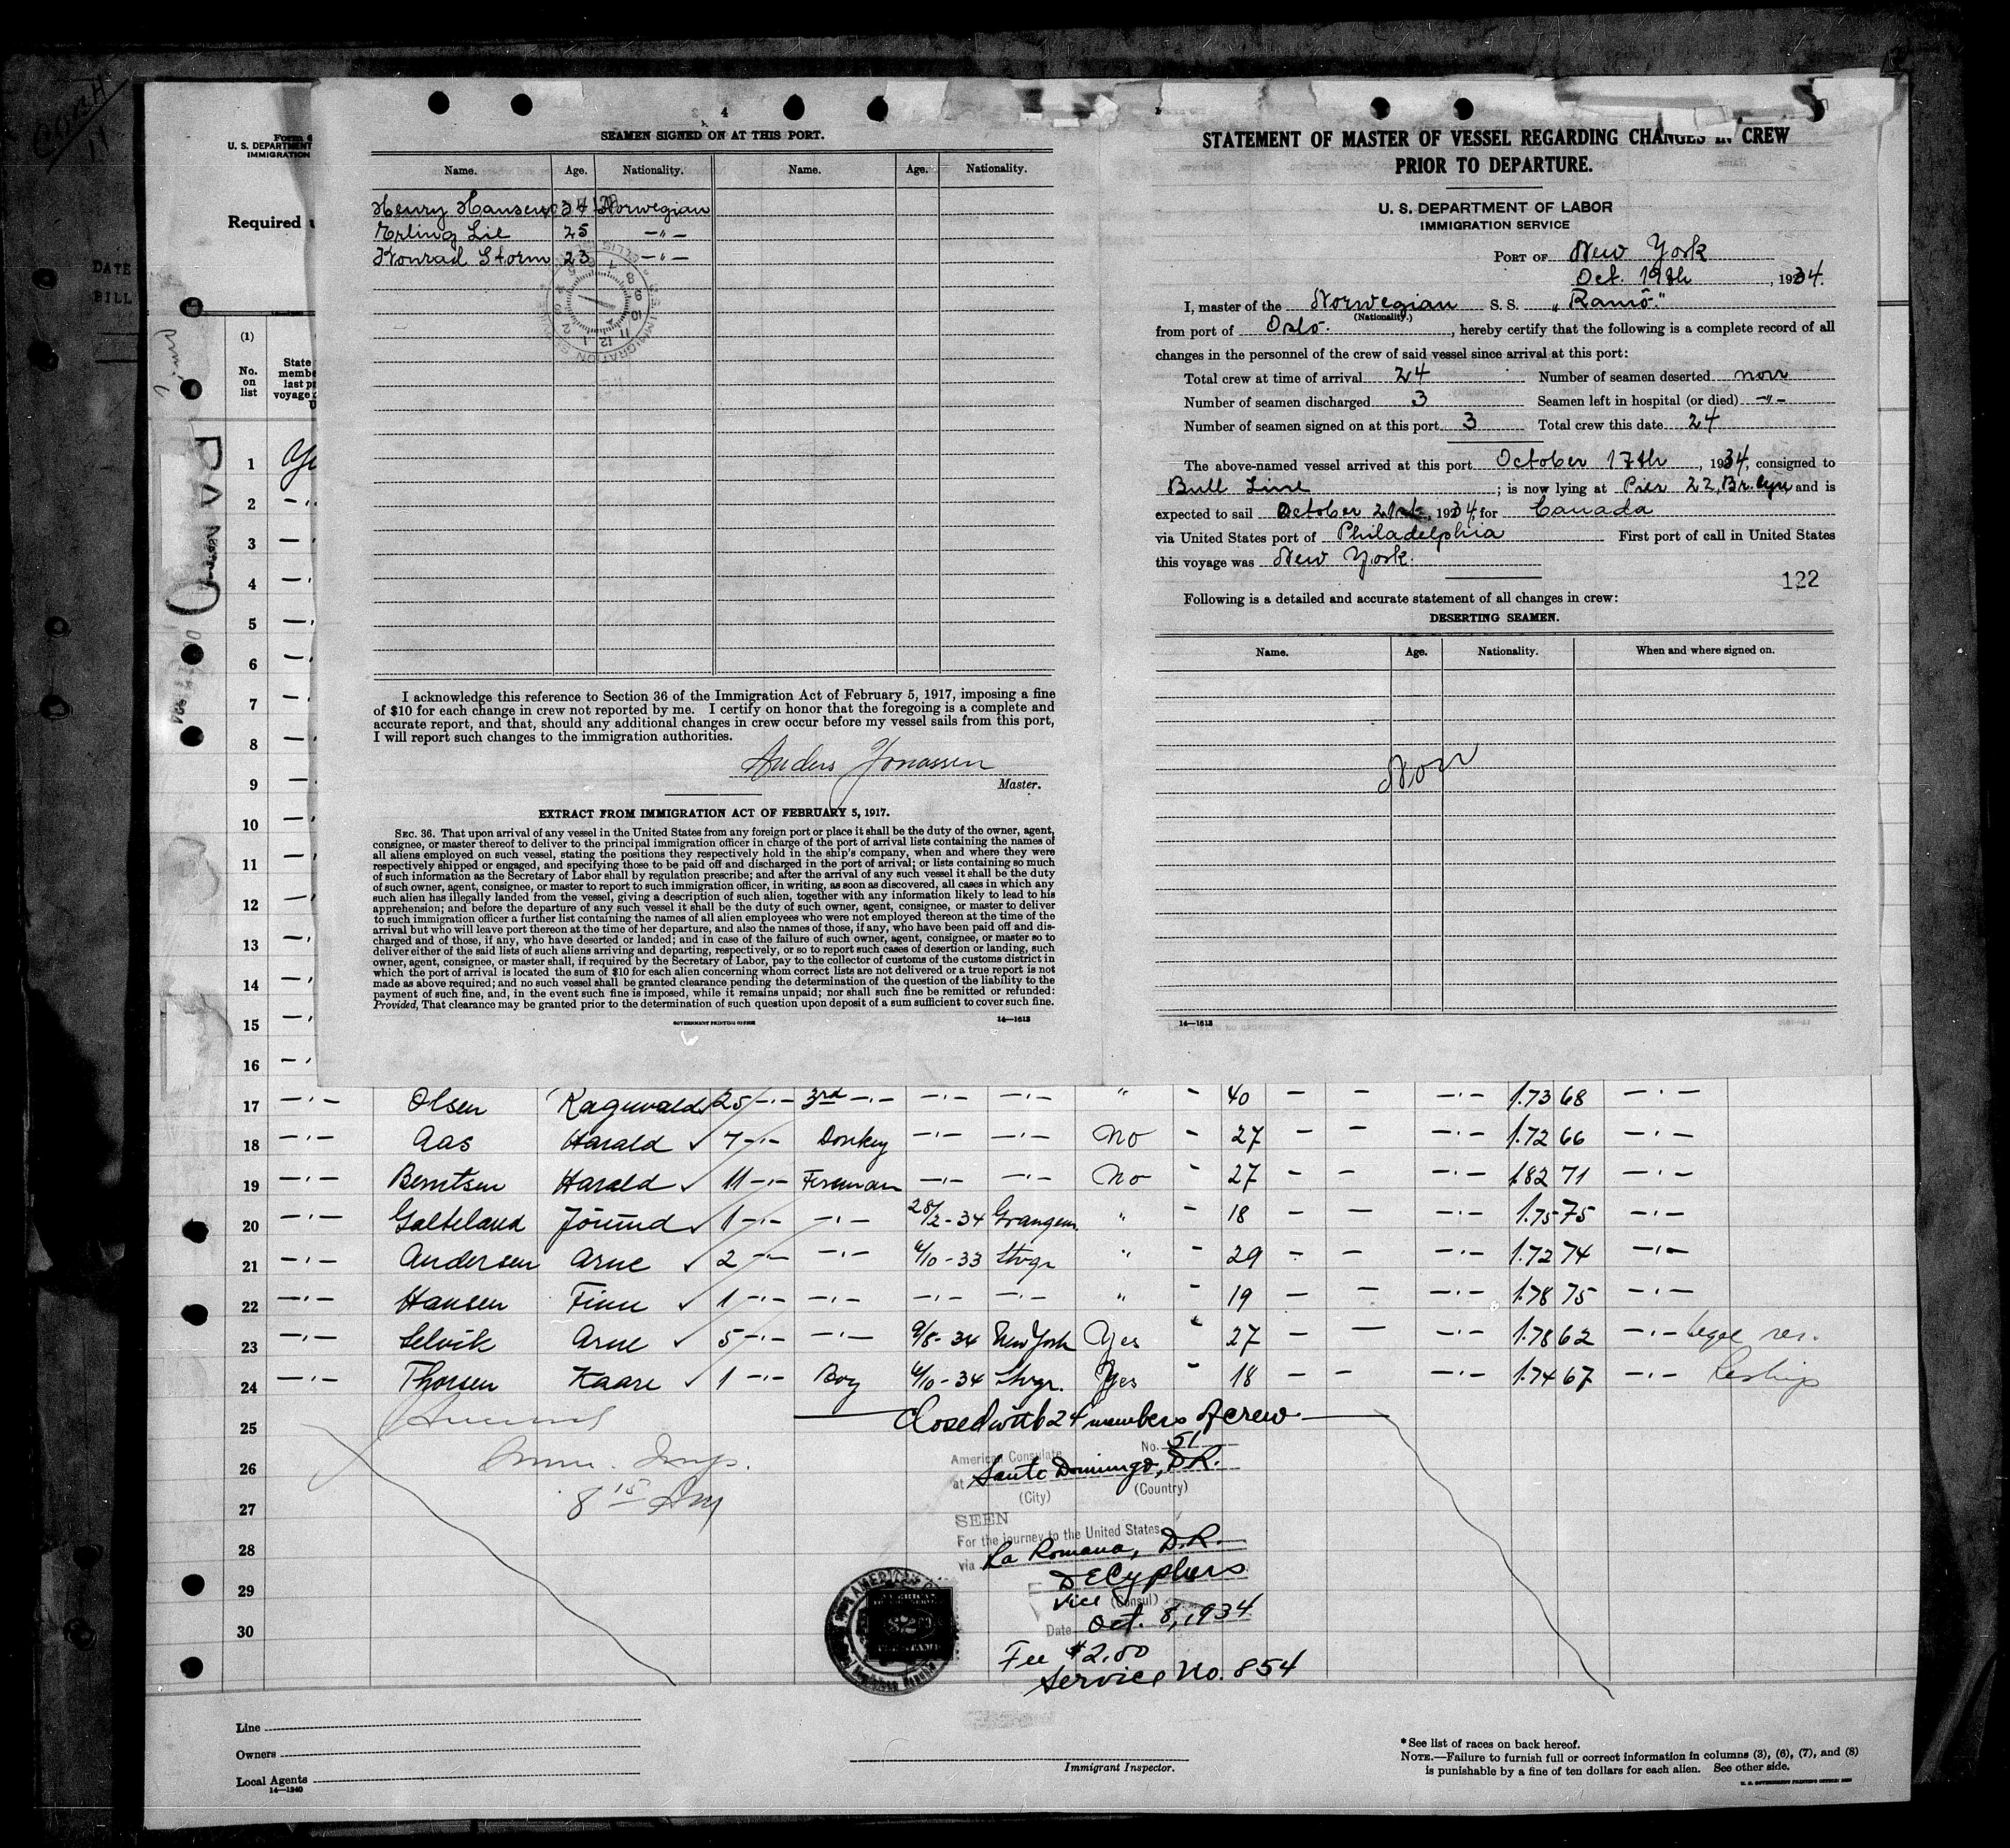 Cont'd
11
DATE
BILL
Form 6
U. S. DEPARTMENT
IMMIGRATION
Required
(1)
No.
on
list
State
membe
last p
voyage
U
4
SEAMEN SIGNED ON AT THIS PORT.
Name. Age. Nationality. Name. Age. Nationality.
Henry Hansen 34 Norwegian
Erling Lie 25 -"-
Konrad Storm 23 -"-
I acknowledge this reference to Section 36 of the Immigration Act of February 5, 1917, imposing a fine
of $10 for each change in crew not reported by me. I certify on honor that the foregoing is a complete and
accurate report, and that, should any additional changes in crew occur before my vessel sails from this port,
I will report such changes to the immigration authorities.
Anders Jonassen
Master.
EXTRACT FROM IMMIGRATION ACT OF FEBRUARY 5, 1917.
SEC. 36. That upon arrival of any vessel in the United States from any foreign port or place it shall be the duty of the owner, agent,
consignee, or master thereof to deliver to the principal immigration officer in charge of the port of arrival lists containing the names of
all aliens employed on such vessel, stating the positions they respectively hold in the ship's company, when and where they were
respectively shipped or engaged, and specifying those to be paid off and discharged in the port of arrival; or lists containing so much
of such information as the Secretary of Labor shall by regulation prescribe; and after the arrival of any such vessel it shall be the duty
of such owner, agent, consignee, or master to report to such immigration officer, in writing, as soon as discovered, all cases in which any
such alien has illegally landed from the vessel, giving a description of such alien, together with any information likely to lead to his
apprehension; and before the departure of any such vessel it shall be the duty of such owner, agent, consignee, or master to deliver
to such immigration officer a further list containing the names of all alien employees who were not employed thereon at the time of the
arrival but who will leave port thereon at the time of her departure, and also the names of those, if any, who have been paid off and dis-
charged and of those, if any, who have deserted or landed; and in case of the failure of such owner, agent, consignee, or master so to
deliver either of the said lists of such aliens arriving and departing, respectively, or so to report such cases of desertion or landing, such
owner, agent, consignee, or master shall, if required by the Secretary of Labor, pay to the collector of customs of the customs district in
which the port of arrival is located the sum of $10 for each alien concerning whom correct lists are not delivered or a true report is not
made as above required; and no such vessel shall be granted clearance pending the determination of the question of the liability to the
payment of such fine, and, in the event such fine is imposed, while it remains unpaid; nor shall such fine be remitted or refunded:
Provided, That clearance may be granted prior to the determination of such question upon deposit of a sum sufficient to cover such fine.
GOVERNMENT PRINTING OFFICE 14—1613
STATEMENT OF MASTER OF VESSEL REGARDING CHANGES IN CREW
PRIOR TO DEPARTURE.
U. S. DEPARTMENT OF LABOR
IMMIGRATION SERVICE
PORT OF New York
Oct. 19th, 1934.
I, master of the Norwegian S. S. „Ramö."
(Nationality.)
from port of Oslo., hereby certify that the following is a complete record of all
changes in the personnel of the crew of said vessel since arrival at this port:
Total crew at time of arrival 24 Number of seamen deserted non
Number of seamen discharged 3 Seamen left in hospital (or died) -"-
Number of seamen signed on at this port 3 Total crew this date 24
The above-named vessel arrived at this port October 17th, 1934, consigned to
Bull Line; is now lying at Pier 22, Br.lyn and is
expected to sail October 21st, 1934, for Canada
via United States port of Philadelphia First port of call in United States
this voyage was New York.
122
Following is a detailed and accurate statement of all changes in crew:
DESERTING SEAMEN.
Name. Age. Nationality. When and where signed on.
Non
14—1613
1
2
3
4
5
6
7
8
9
10
11
12
13
14
15
16
17 -"- Olsen Ragnvald 25 -"- 3rd -"- -"- -"- " - 40 - - -"- 1.73 68 -"-
18 -"- Aas Harald 7 -"- Donkey -"- -"- No - 27 - - -"- 1.72 66 -"-
19 -"- Berntsen Harald 11 -"- Fireman -"- -"- No - 27 - - -"- 1.82 71 -"-
20 -"- Galteland Jörund 1 -"- -"- 28/2-34 Grangem. " - 18 - - -"- 1.75 75 -"-
21 -"- Andersen Arne 2 -"- -"- 4/10-33 Stvgr " - 29 - - -"- 1.72 74 -"-
22 -"- Hansen Finn 1 -"- -"- -"- -"- " - 19 - - -"- 1.78 75 -"-
23 -"- Selvik Arne 5 -"- -"- 9/8-34 New York Yes " 27 - - -"- 1.78 62 -"- legal res.
24 -"- Thorsen Kaare 1 -"- Boy 4/10-34 Stvgr. Yes - 18 - - -"- 1.74 67 -"-
25 Closed with 24 members of crew
26
27
28
29
30
Imm. Insp.
8 15 AM
American Consulate No. 51
at Santo Domingo, D.R.
(City) (Country)
SEEN
For the journey to the United States
via La Romana, D.R.
Vice (Consul)
Date Oct. 8, 1934
Fee $2.00
Service No. 854
Line
Owners
Local Agents
14—1240
Immigrant Inspector.
*See list of races on back hereof.
NOTE.—Failure to furnish full or correct information in columns (3), (6), (7), and (8)
is punishable by a fine of ten dollars for each alien. See other side.